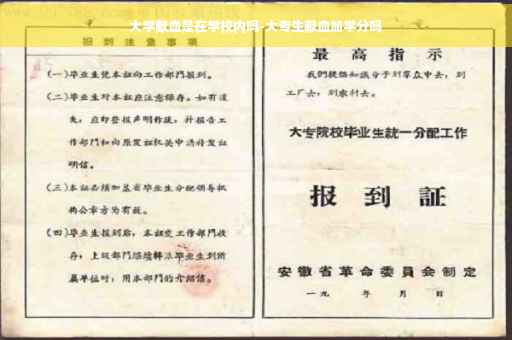 大学献血是在学校内吗-大专生献血加学分吗
报到注意事项
(一)毕业生凭本证向工作部门报到。
(二)毕业生对本证应注意保存。如有遗
失，应即登报声明作废，并报告工
作部门和向原发证机关申请补发证
明信。
(三)本证必须加盖省毕业生分配领导机
构公章方为有效。
(四)毕业生报到后，本证交工作部门收
存；上级部门继续转派毕业生到所
属单位时，用本部门的介绍信。
最高指示
我们提倡知识分子到群众中去，到
工厂去，到农村去。
大专院校毕业生統一分配工作
报到証
安徽省革命委員会制定
一九 年 月 日